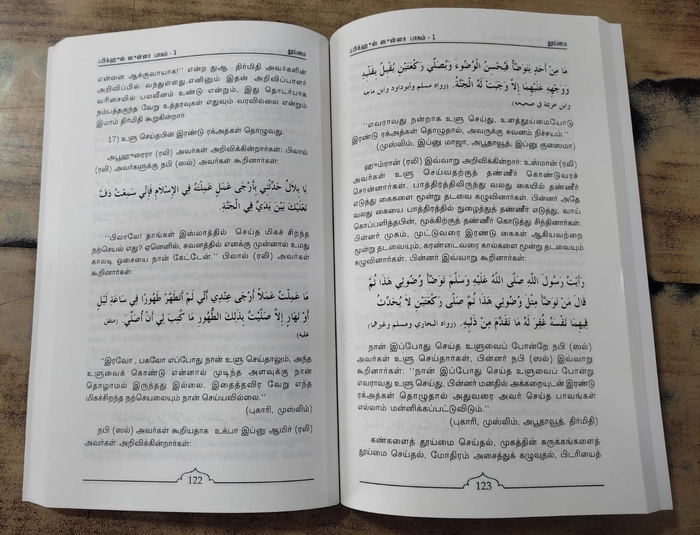 ஃபிக்ஹுஸ் ஸுன்னா பாகம் - 1 தூய்மை
என்னை ஆக்குவாயாக!'' என்ற துஆ. திர்மிதி அவர்களின்
அறிவிப்பில் வந்துள்ளது.எனினும் இதன் அறிவிப்பாளர்
வரிசையில் பலவீனம் உண்டு என்றும், இது தொடர்பாக
நம்பத்தகுந்த வேறு உத்தரவுகள் எதுவும் வரவில்லை என்றும்
இமாம் திர்மிதி கூறுகின்றார்.
17) உளு செய்தபின் இரண்டு ரக்அத்கள் தொழுவது.
அபூஹுரைரா (ரலி) அவர்கள் அறிவிக்கின்றார்கள்: பிலால்
(ரலி) அவர்களுக்கு நபி (ஸல்) அவர்கள் கூறினார்கள்:
يَا بِلَالُ حَدِّثْنِي بِأَرْجَى عَمَلٍ عَمِلْتَهُ فِي الْإِسْلَامِ فَإِنِّي سَمِعْتُ دَفَّ
نَعْلَيْكَ بَيْنَ يَدَيَّ فِي الْجَنَّةِ
''பிலாலே! தாங்கள் இஸ்லாத்தில் செய்த மிகச் சிறந்த
நற்செயல் எது? ஏனெனில், சுவனத்தில் எனக்கு முன்னால் உமது
காலடி ஓசையை நான் கேட்டேன்.'' பிலால் (ரலி) அவர்கள்
கூறினார்கள்:
مَا عَمِلْتُ عَمَلًا أَرْجَى عِنْدِي أَنِّي لَمْ أَتَطَهَّرْ طَهُورًا فِي سَاعَةِ لَيْلٍ
أَوْ نَهَارٍ إِلَّا صَلَّيْتُ بِذَلِكَ الطُّهُورِ مَا كُتِبَ لِي أَنْ أُصَلِّيَ. (متفق
عليه)
''இரவோ , பகலோ எப்போது நான் உளு செய்தாலும், அந்த
உளுவைக் கொண்டு என்னால் முடிந்த அளவுக்கு நான்
தொழாமல் இருந்தது இல்லை. இதைத்தவிர வேறு எந்த
மிகச்சிறந்த நற்செயலையும் நான் செய்யவில்லை.''
(புகாரி, முஸ்லிம்)
நபி (ஸல்) அவர்கள் கூறியதாக உக்பா இப்னு ஆமிர் (ரலி)
அவர்கள் அறிவிக்கின்றார்கள்:
122
ஃபிக்ஹுஸ் ஸுன்னா பாகம் - 1 தூய்மை
مَا مِنْ أَحَدٍ يَتَوَضَّأُ فَيُحْسِنُ الْوُضُوءَ وَيُصَلِّي رَكْعَتَيْنِ يُقْبِلُ بِقَلْبِهِ
وَوَجْهِهِ عَلَيْهِمَا إِلَّا وَجَبَتْ لَهُ الْجَنَّةُ. (رواه مسلم وأبوداود وابن ماجه
وابن خزيمة في صحيحه)
''எவராவது நன்றாக உளு செய்து, உளத்தூய்மையோடு
இரண்டு ரக்அத்கள் தொழுதால், அவருக்கு சுவனம் நிச்சயம்.''
(முஸ்லிம், இப்னு மாஜா, அபூதாவூத், இப்னு குஸைமா)
ஹும்ரான் (ரலி) இவ்வாறு அறிவிக்கிறார்: உஸ்மான் (ரலி)
அவர்கள் உளு செய்வதற்குத் தண்ணீர் கொண்டுவரச்
சொன்னார்கள். பாத்திரத்திலிருந்து வலது கையில் தண்ணீர்
எடுத்து கைகளை மூன்று தடவை கழுவினார்கள். பின்னர் அதே
வலது கையை பாத்திரத்தில் நுழைத்துத் தண்ணீர் எடுத்து, வாய்
கொப்பளித்தபின், மூக்கிற்குத் தண்ணீர் கொடுத்து சிந்தினார்கள்.
பின்னர் முகம், முட்டுவரை இரண்டு கைகள் ஆகியவற்றை
மூன்று தடவையும், கரண்டைவரை கால்களை மூன்று தடவையும்
கழுவினார்கள். பின்னர் இவ்வாறு கூறினார்கள்:
رَأَيْتُ رَسُولَ اللَّهِ صَلَّى اللَّهُ عَلَيْهِ وَسَلَّمَ تَوَضَّأَ وُضُوئِي هَذَا ثُمَّ
قَالَ مَنْ تَوَضَّأَ مِثْلَ وُضُوئِي هَذَا ثُمَّ صَلَّى رَكْعَتَيْنِ لَا يُحَدِّثُ
فِيهِمَا نَفْسَهُ غُفِرَ لَهُ مَا تَقَدَّمَ مِنْ ذَنْبِهِ. (رواه البخاري ومسلم وغيرهما)
நான் இப்போது செய்த உளுவைப் போன்றே நபி (ஸல்)
அவர்கள் உளு செய்தார்கள், பின்னர் நபி (ஸல்) இவ்வாறு
கூறினார்கள்: ''நான் இப்போது செய்த உளுவைப் போன்று
எவராவது உளு செய்து, பின்னர் மனதில் அக்கறையுடன் இரண்டு
ரக்அத்கள் தொழுதால் அதுவரை அவர் செய்த பாவங்கள்
எல்லாம் மன்னிக்கப்பட்டுவிடும்.''
(புகாரி, முஸ்லிம், அபூதாவூத், திர்மிதி)
கண்களைத் தூய்மை செய்தல், முகத்தின் சுருக்கங்களைத்
தூய்மை செய்தல், மோதிரம் அசைத்துக் கழுவுதல், பிடரியைத்
123